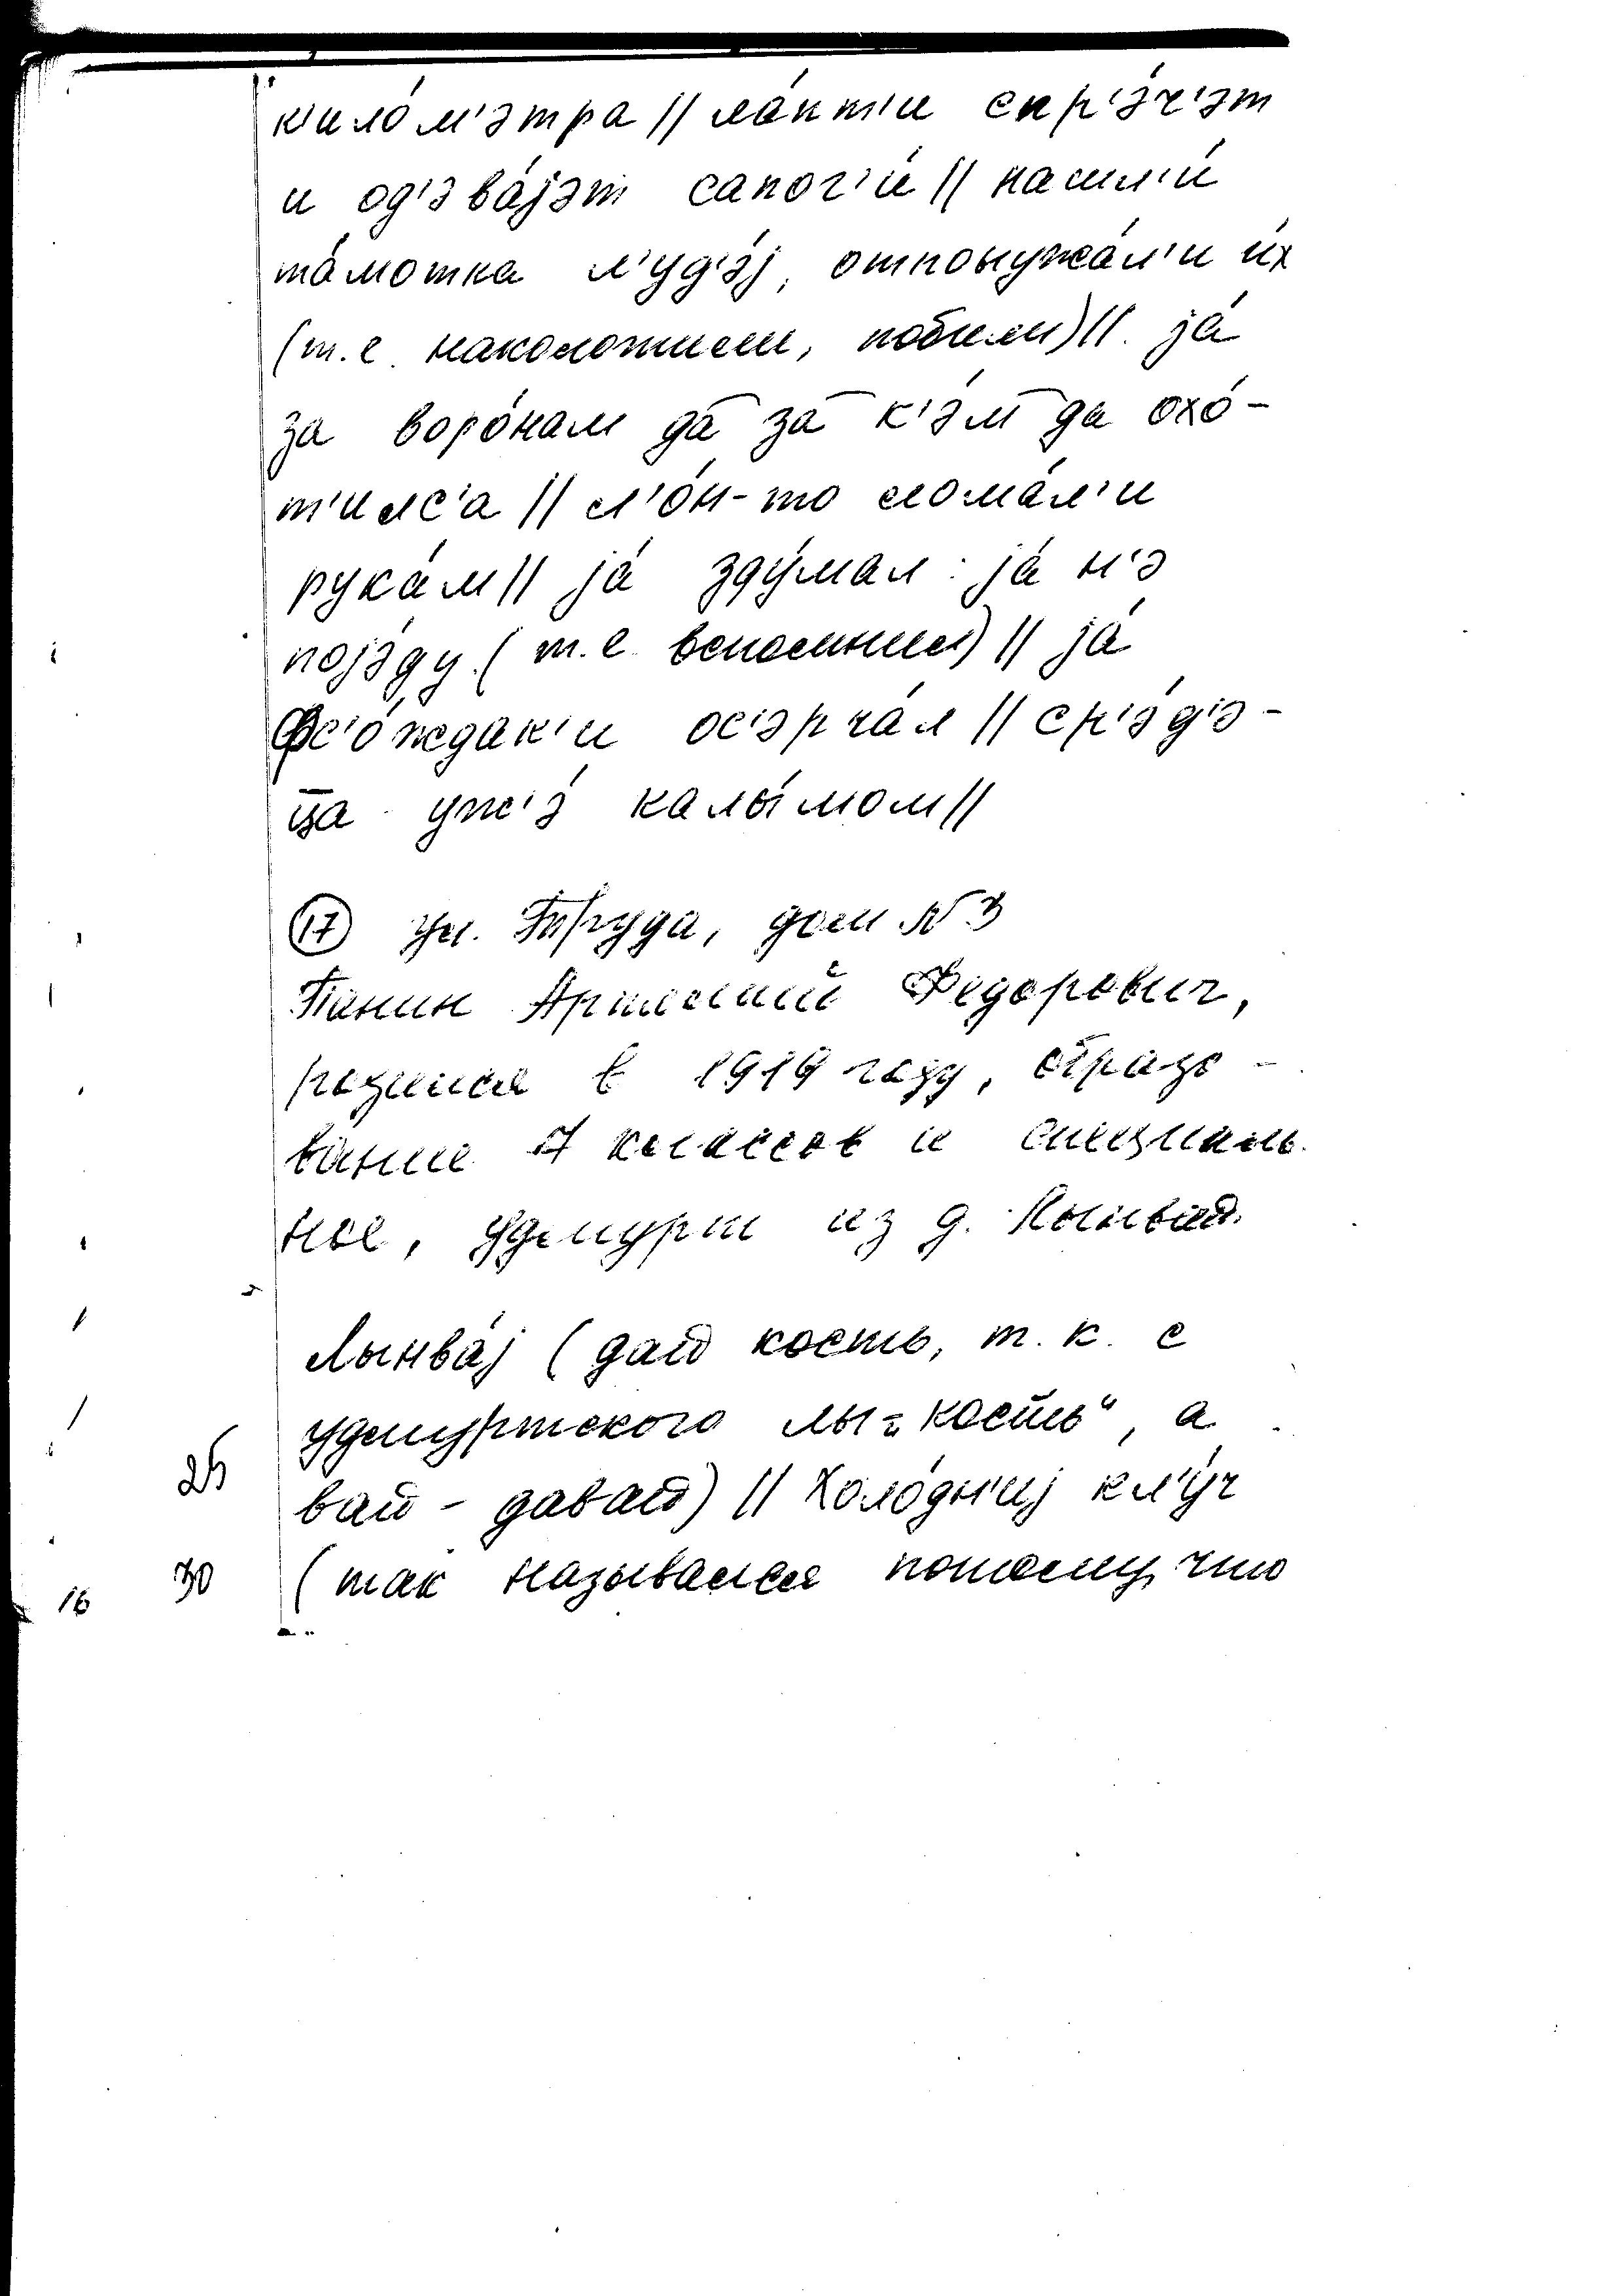 к'ило́м'этра // ла́пт'и скр'э́ч'эт
и од'эва́jэт сапог'и́ // нашл'и́
та́мотка л'уд'э́j, отпонужа́л'и и́х
(т.е. наколотили, побили) // já
за воро́нам да за к'э́м да охо́-
т'илс'а // л'о́н-то лома́л'и
рука́м // já зду́мал: já н'э
поjэ́ду (т.е. вспомнил) // já
фс'о́ ждак'и ос'эрча́л // ср'э́д'э-
ца уж'э́ калы́мом //
(17) ул. Труда, дом №3
Панин Артемий Федорович,
родился в 1919 году, образо-
вание 7 классов и специаль-
ное, удмурт из д. Лынвай.
Лынва́j (дай кость, т.к. с
удмуртского лы - „кость", а
25 вай - давай) // Холо́дн'иj кл'у́ч
16 30 (так назывался потому, что